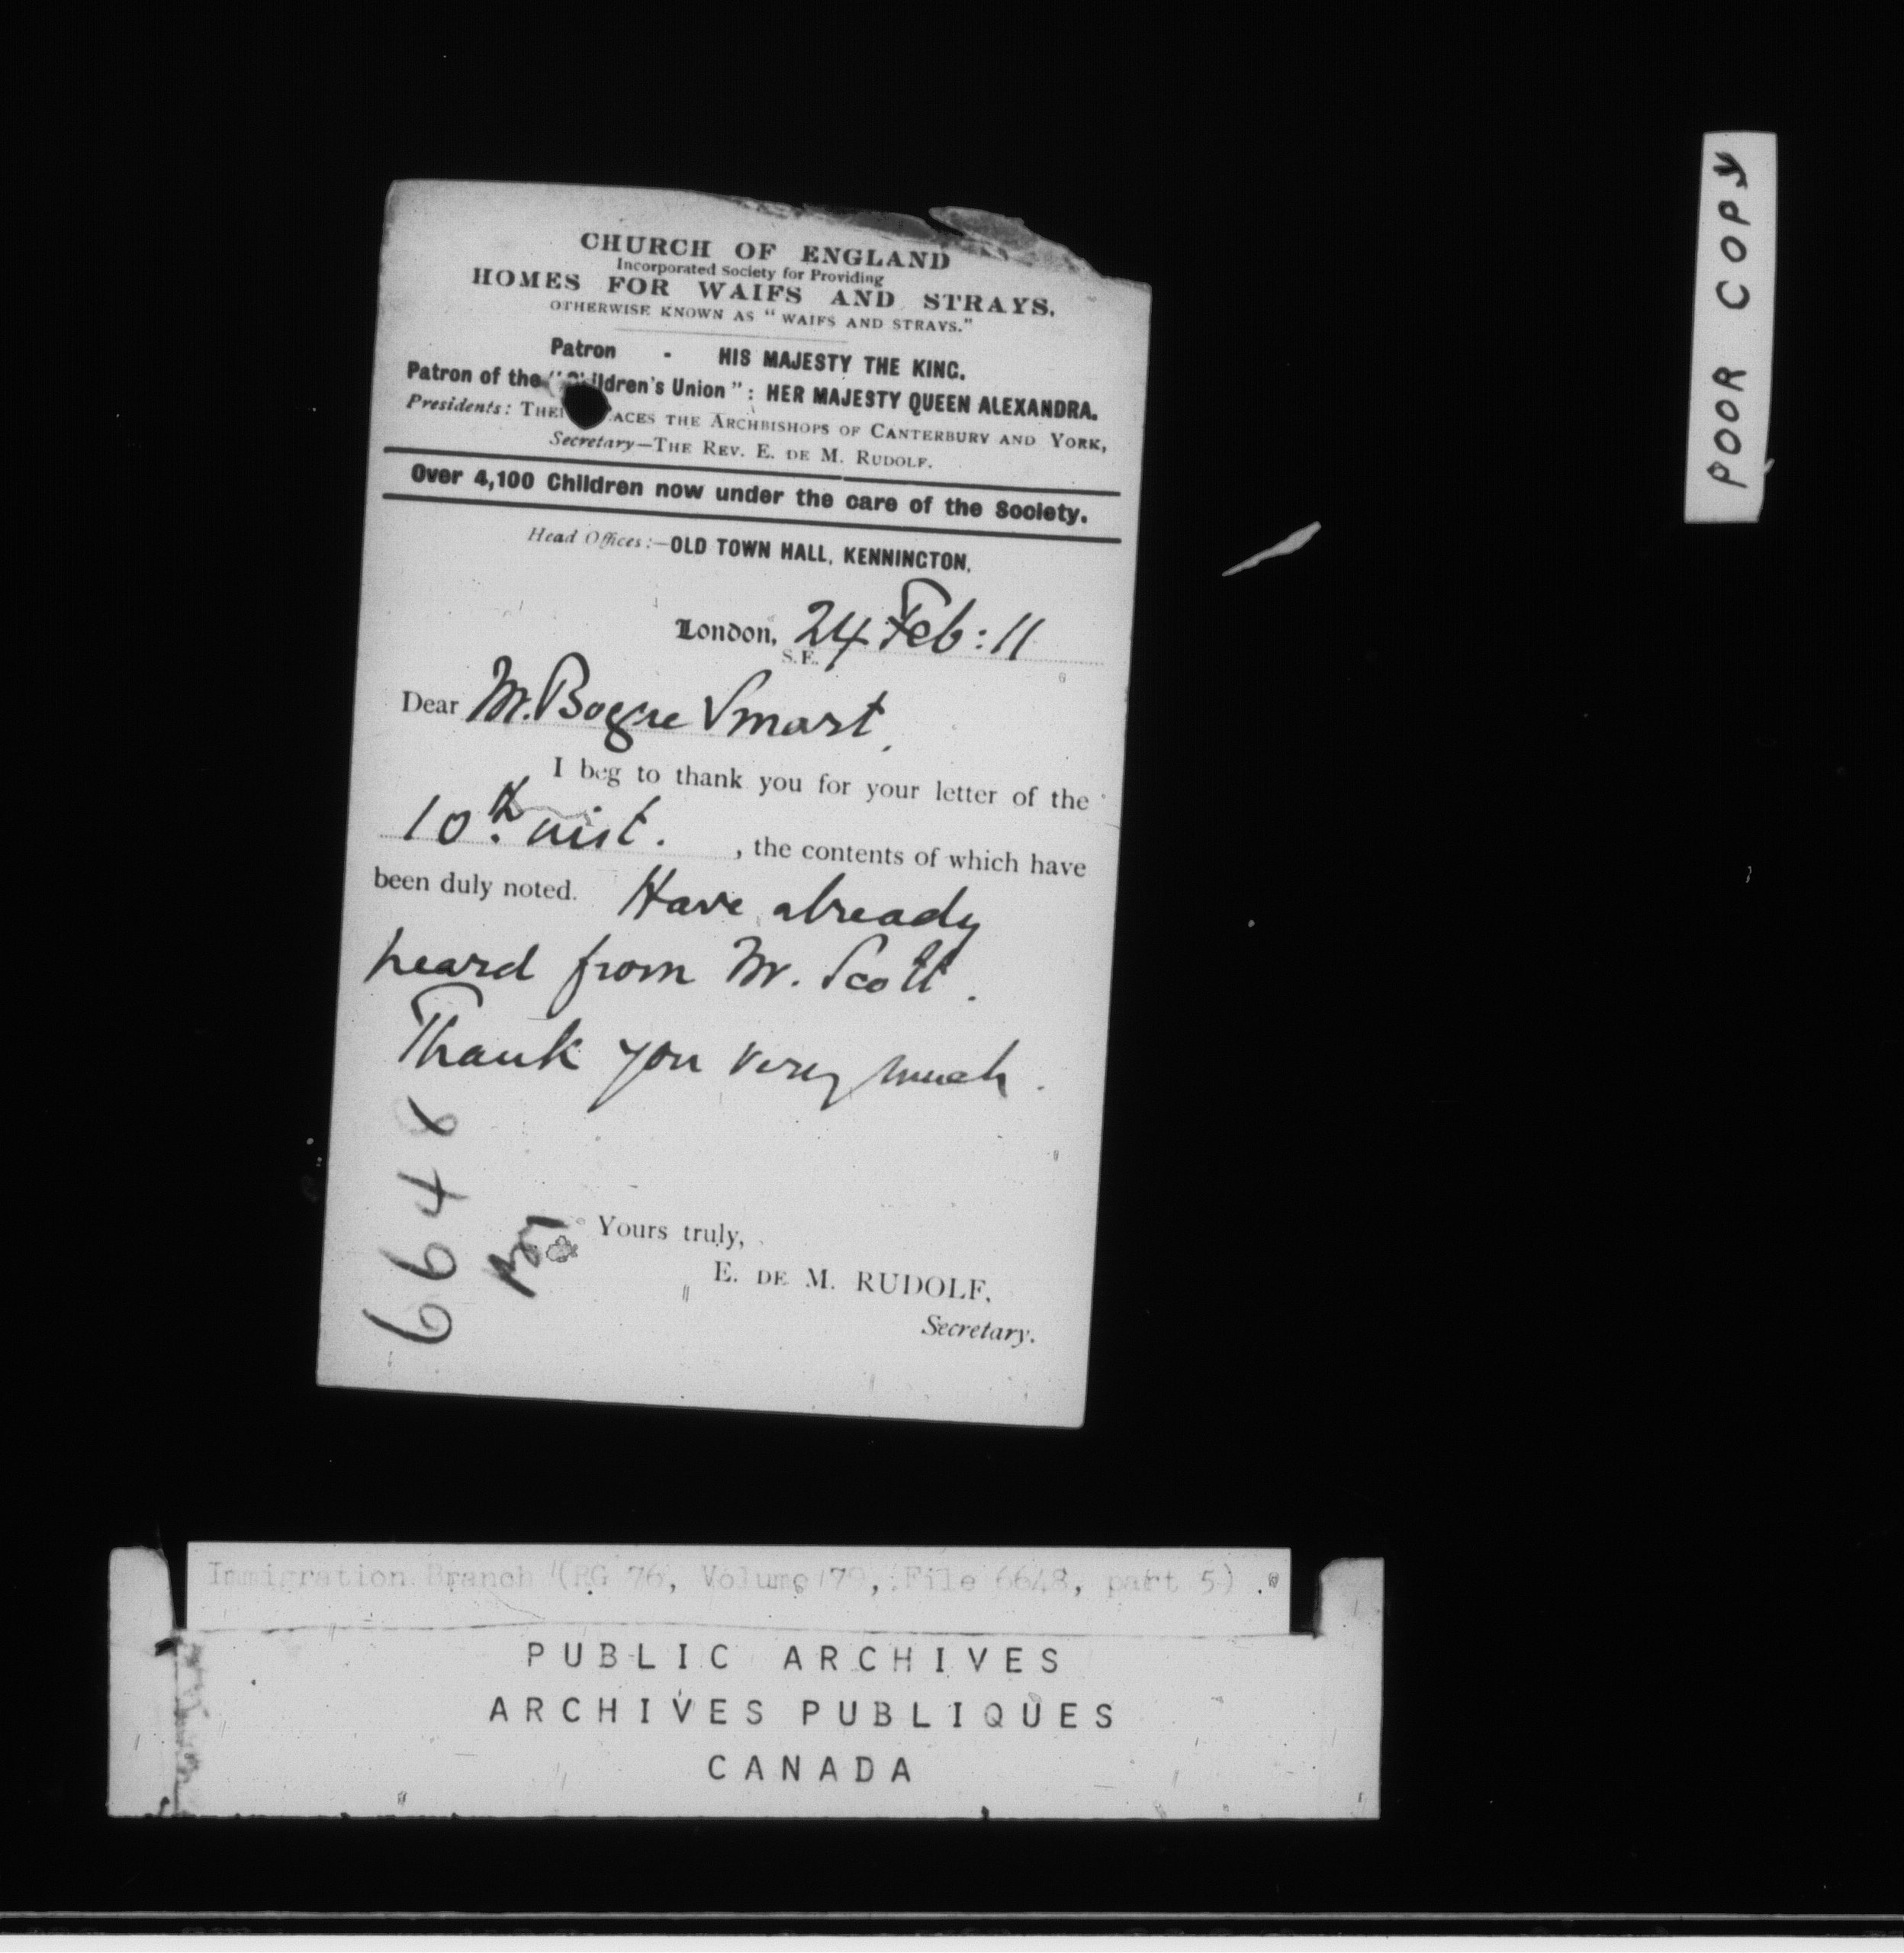 CHURCH OF ENGLAND
Incorporated Society for Providing
HOMES FOR WAIFS AND STRAYS,
OTHERWISE KNOWN AS "WAIFS AND STRAYS."
Patron - HIS MAJESTY THE KING.
Patron of the "Children's Union": HER MAJESTY QUEEN ALEXANDRA.
Presidents: THEIR GRACES THE ARCHBISHOPS OF CANTERBURY AND YORK,
Secretary—THE REV. E. DE M. RUDOLF.
Over 4,100 Children now under the care of the Society.
Head Offices:—OLD TOWN HALL, KENNINGTON,
London, 24 Feb: 11
S.E.
Dear Mr. Bogue Smart,
I beg to thank you for your letter of the
10th. inst. , the contents of which have
been duly noted. Have already
heard from Mr. Scott.
Thank you very much.
Yours truly,
E. DE M. RUDOLF,
Secretary.
6648
POOR COPY
Immigration Branch (RG 76, Volume 79, File 6648, part 5)
PUBLIC ARCHIVES
ARCHIVES PUBLIQUES
CANADA